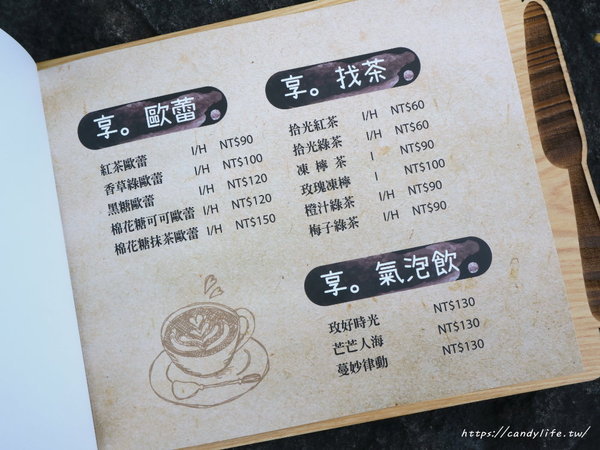 享。歐蕾
紅茶歐蕾 I/H NT$90
香草綠歐蕾 I/H NT$100
黑糖歐蕾 I/H NT$120
棉花糖可可歐蕾 I/H NT$120
棉花糖抹茶歐蕾 I/H NT$150
享。找茶
拾光紅茶 I/H NT$60
拾光綠茶 I/H NT$60
凍檸茶 I NT$90
玫瑰凍檸 I NT$100
橙汁綠茶 I/H NT$90
梅子綠茶 I/H NT$90
享。氣泡飲
玫好時光 NT$130
芒芒人海 NT$130
蔓妙律動 NT$130
https://candylife.tw/